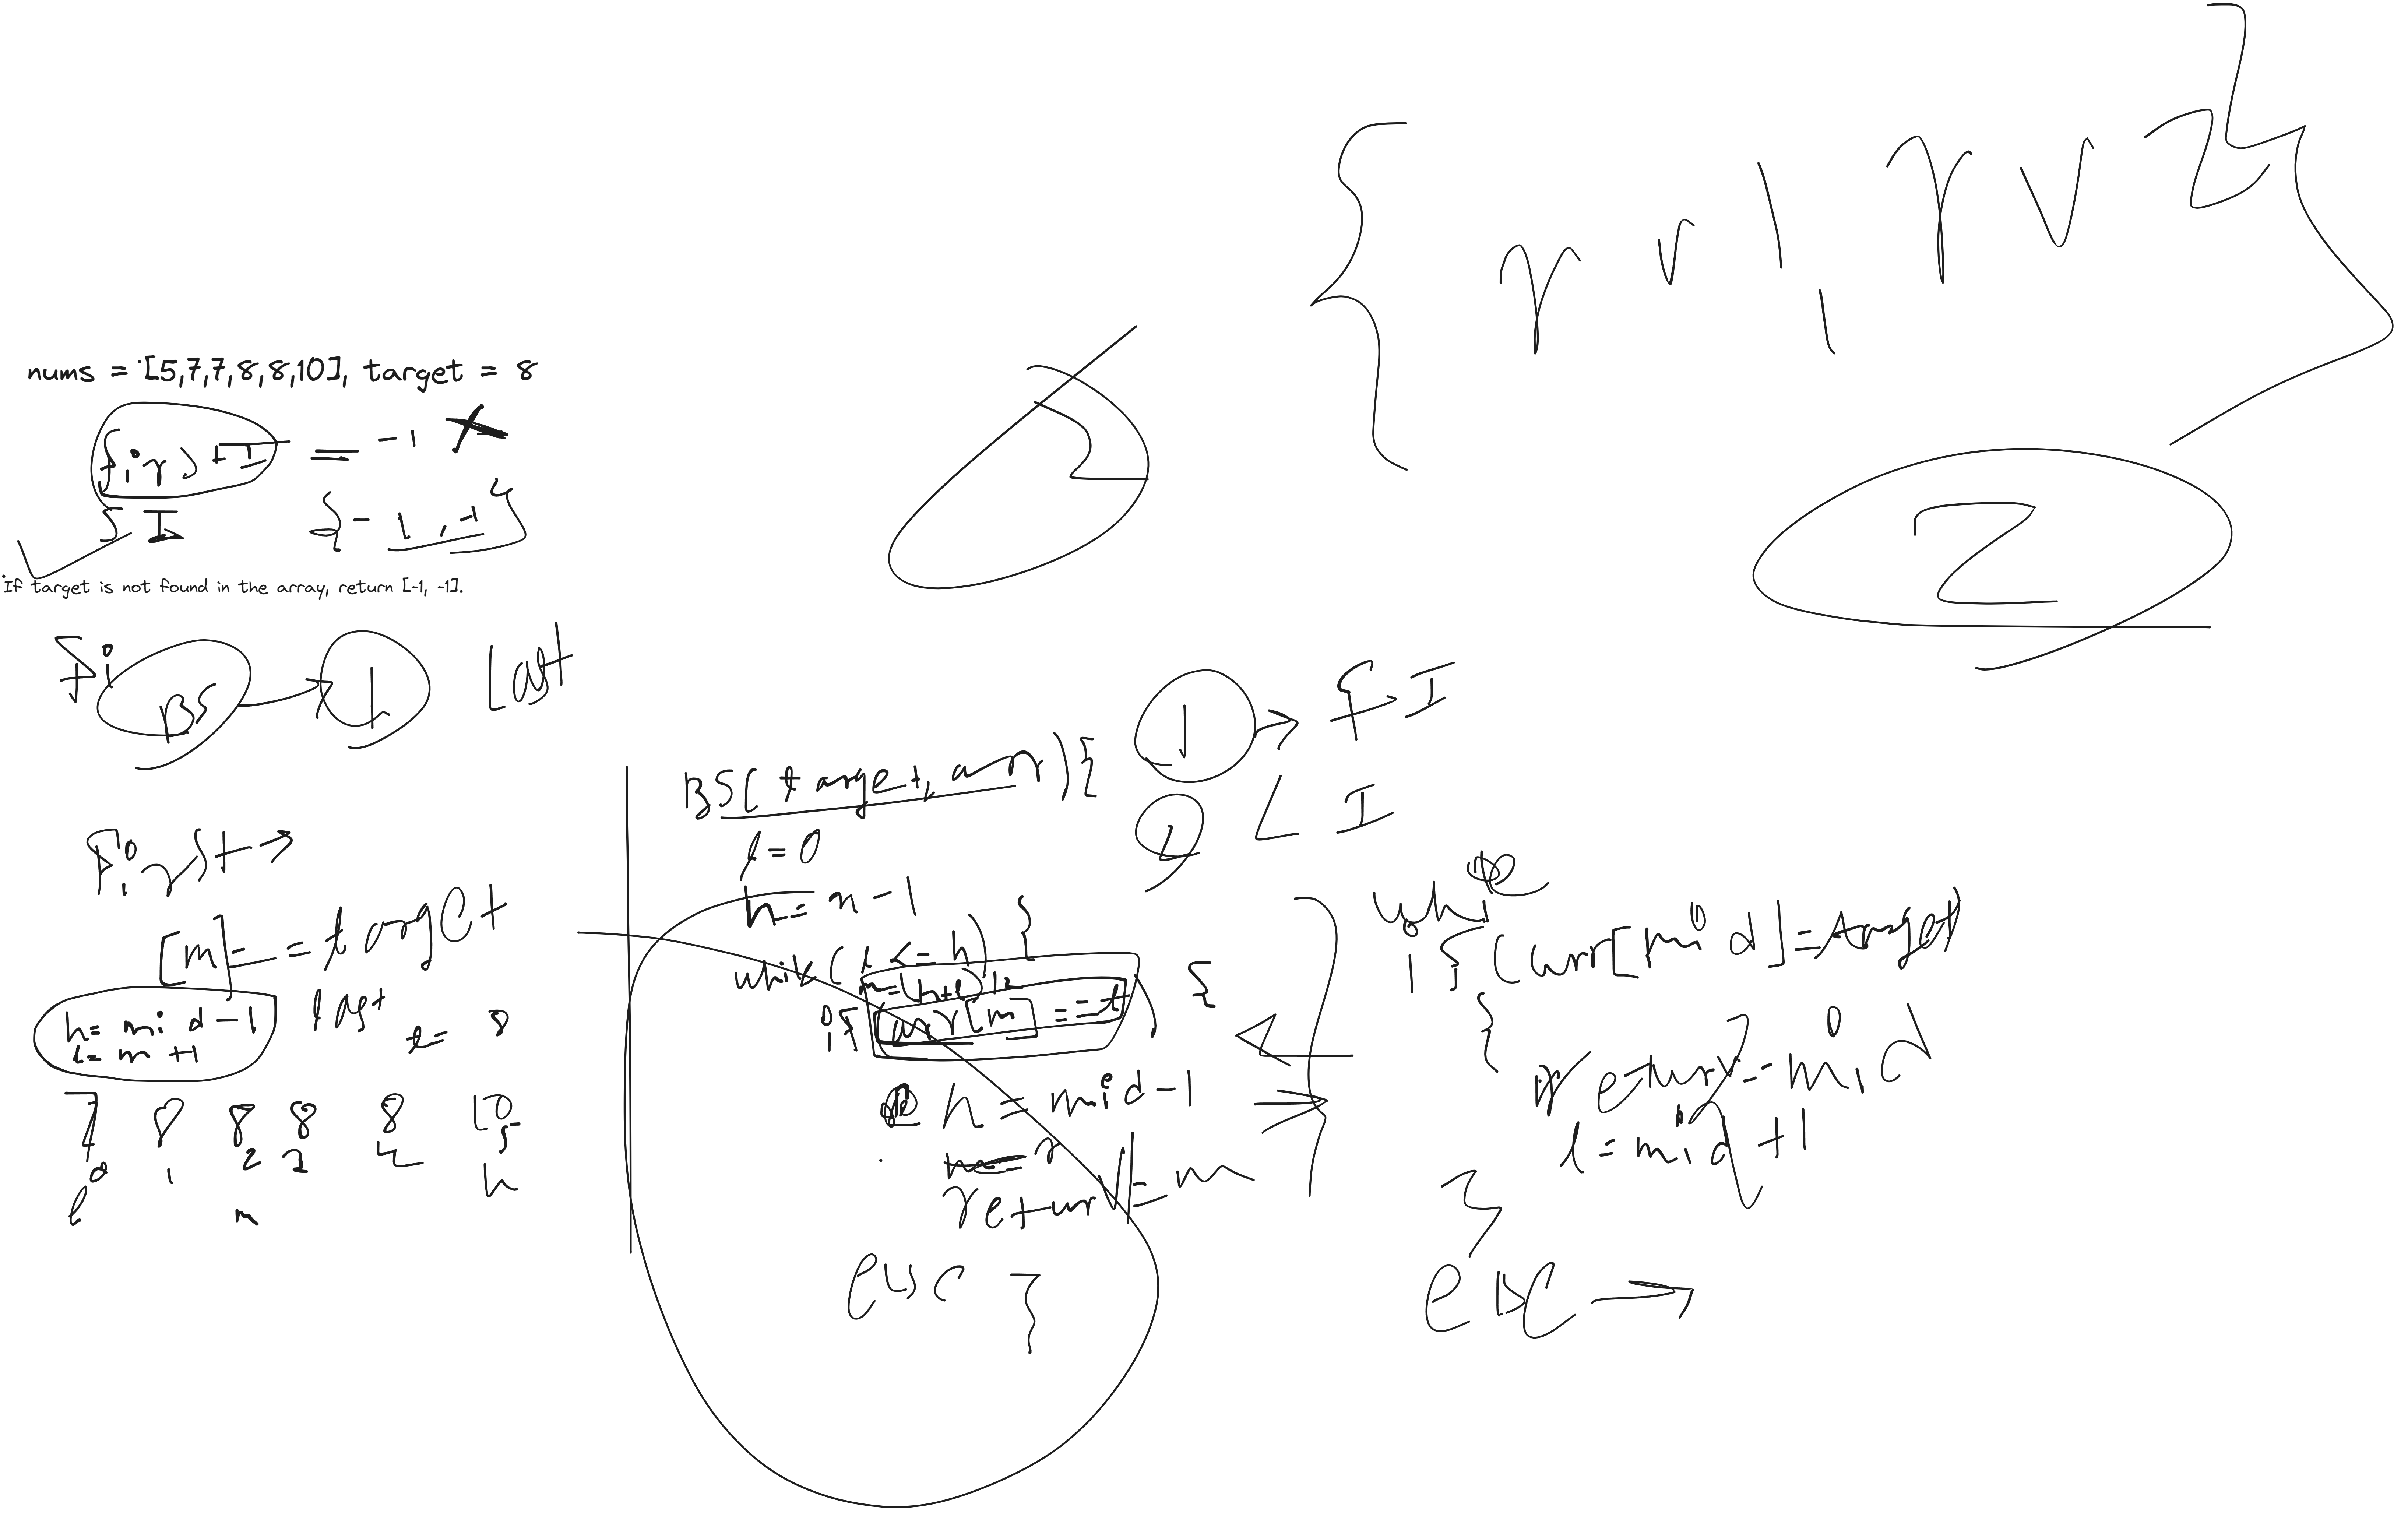 nums = [5,7,7,8,8,10], target = 8
first I = -1
{-1, -1}
If target is not found in the array, return [-1, -1].
BS → 1 last
First →
[m] == target
last
h = mid-1
l = m+1
t = 8
7 8 8 8 8 10
0 1 2 3 4 5
l m h
BS( target, arr){
l = 0
h = n-1
while ( l <= h) {
m=(h+l)/2
if( arr[m] == t ) {
h = mid-1
return = m
else }
1 → f I
2 L I
while
if (arr[mid]==target)
{
return = mid
l = mid+1
}
else →
{ rv1, rv2 }
2
2